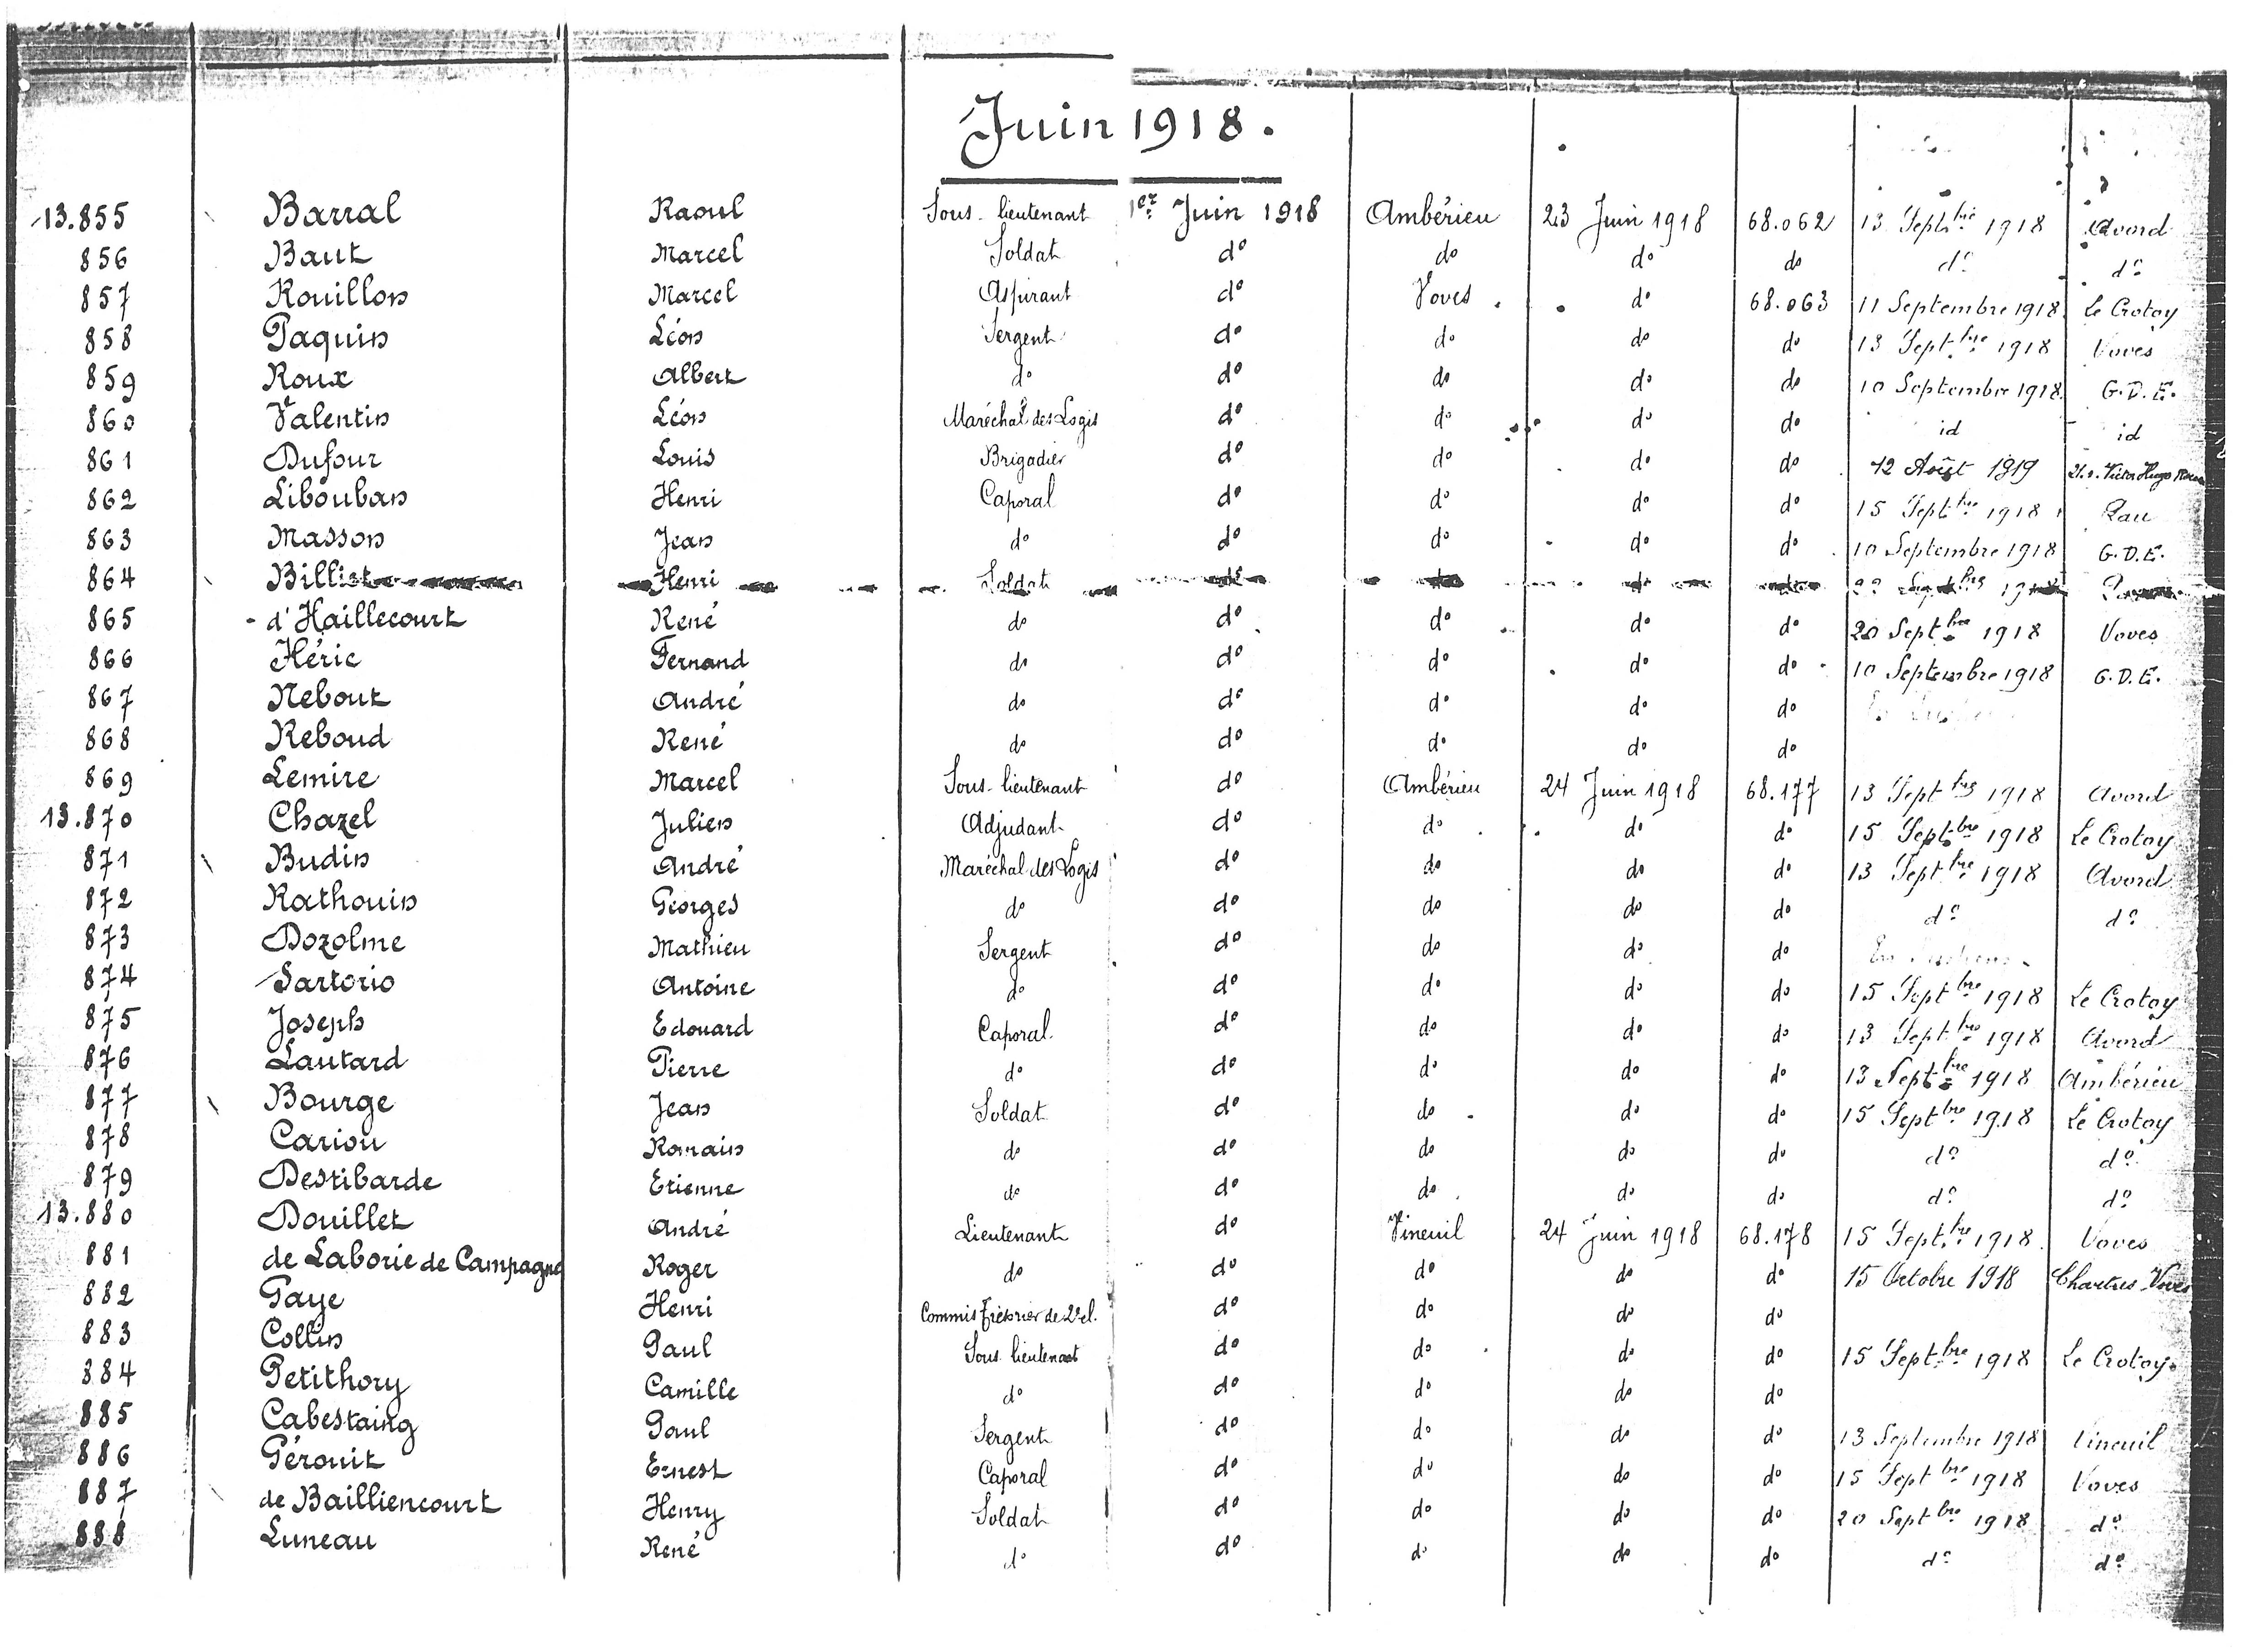 Juin 1918.
13.855 Barral Raoul Sous-lieutenant 1er Juin 1918 Ambérieu 23 Juin 1918 68.062 13 Septbre 1918 Avord
856 Baut Marcel Soldat do do do do do do
857 Rouillon Marcel Aspirant do Voves do 68.063 11 Septembre 1918 Le Crotoy
858 Paquin Léon Sergent do do do do 13 Septbre 1918 Voves
859 Roux Albert do do do do do 10 Septembre 1918 G.D.E.
860 Valentin Léon Maréchal des Logis do do do do id id
861 Dufour Louis Brigadier do do do do 12 Août 1919 Victor Hugo
862 Libouban Henri Caporal do do do do 15 Septbre 1918 Pau
863 Masson Jean do do do do do 10 Septembre 1918 G.D.E.
864 Billiet Henri Soldat do do do do Septbre
865 d'Haillecourt René do do do do do 20 Septbre 1918 Voves
866 Héric Fernand do do do do do 10 Septembre 1918 G.D.E.
867 Nebout André do do do do do
868 Reboud René do do do do do
869 Lemire Marcel Sous-lieutenant do Ambérieu 24 Juin 1918 68.177 13 Septbre 1918 Avord
13.870 Chazel Julien Adjudant do do do do 15 Septbre 1918 Le Crotoy
871 Budin André Maréchal des Logis do do do do 13 Septbre 1918 Avord
872 Rathouin Georges do do do do do do do
873 Dozolme Mathieu Sergent do do do do
874 Sartorio Antoine do do do do do 15 Septbre 1918 Le Crotoy
875 Joseph Edouard Caporal do do do do 13 Septbre 1918 Avord
876 Lautard Pierre do do do do do 13 Septbre 1918 Ambérieu
877 Bourge Jean Soldat do do do do 15 Septbre 1918 Le Crotoy
878 Cariou Romain do do do do do do do
879 Destibarde Etienne do do do do do do do
13.880 Douillet André Lieutenant do Vineuil 24 Juin 1918 68.178 15 Septbre 1918 Voves
881 de Laborie de Campagne Roger do do do do do 15 Octobre 1918 Chartres Voves
882 Gaye Henri Commis Trésorier de 2e cl. do do do do
883 Collin Paul Sous-lieutenant do do do do 15 Septbre 1918 Le Crotoy
884 Petithory Camille do do do do do
885 Cabestaing Paul Sergent do do do do 13 Septembre 1918 Vineuil
886 Gérouit Ernest Caporal do do do do 15 Septbre 1918 Voves
887 de Bailliencourt Henry Soldat do do do do 20 Septbre 1918 do
888 Luneau René do do do do do do do